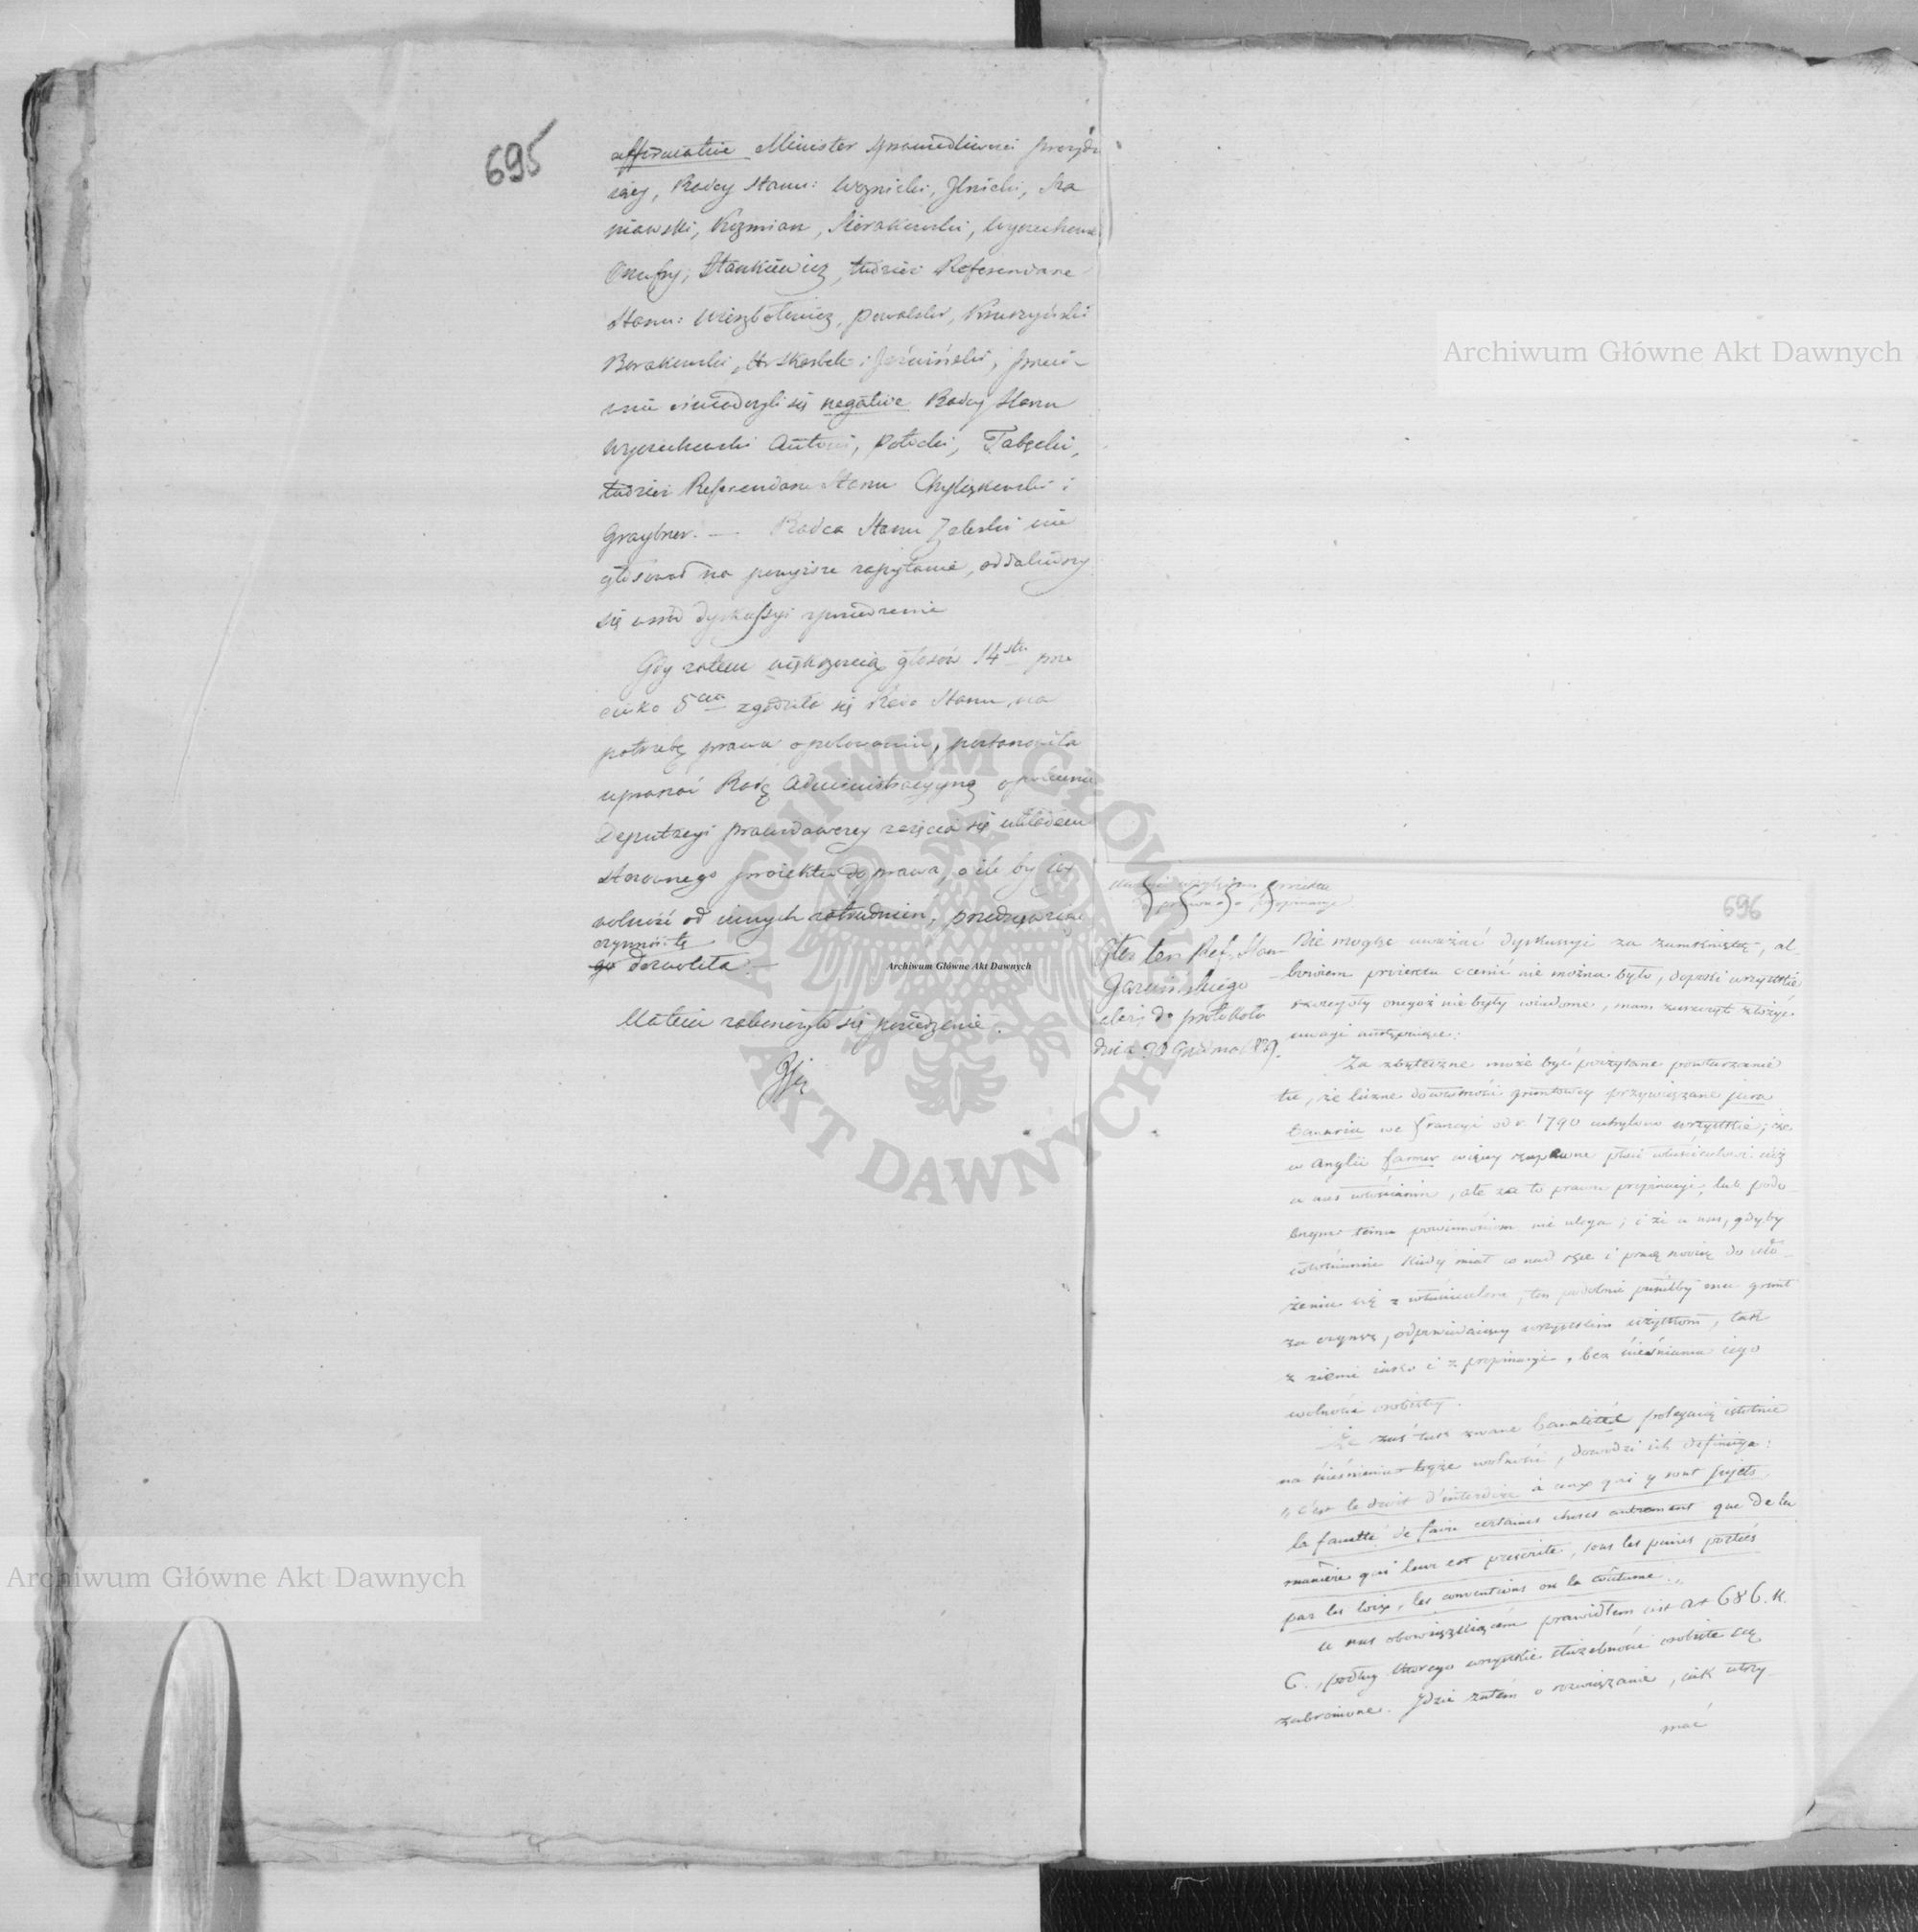 695
affirmative Minister Sprawiedliwości prezydu
iący, Radcy Stanu: Woznicki, Jlnicki, Sza
niawski, Kozmian, Sierakowski, Wyczechowski
Onufry, Stankiewicz, tudzież Referendarze
Stanu: Wierzbołowicz, Kruszyński
Borakowski, Hr Skarbek i Jarciński, przeci-
wnie oświadczyli się negative Radcy Stanu
Wyczechowski Antoni, Potocki, Tabęcki,
tudzież Referendarze Stanu Chyliczkowski i
Graybner. — Radca Stanu Zaleski nie
głosował na powyższe zapytanie, oddaliwszy
się wśród dyskussyi z posiedzenia
Gdy zatem większością głosów 14stu prze
ciwko 5ciu zgodziła się Rada Stanu, na
potrzebę prawa o polowaniu, postanowiła
upraszać Radę Administracyyną o polecenie
Deputacyi prawodawczey zaięcia się układem
stosownego proiektu do prawa, o ile by iey
wolność od innych zatrudnień, przedsięwziąć
czynność tę
go dozwoliła. —
Na tém zakończyło się posiedzenie.
Archiwum Główne Akt Dawnych
ARCHIWUM GŁÓWNE
AKT DAWNYCH
Archiwum Główne Akt Dawnych
Archiwum Główne Akt Dawnych
696
proiektu
prawa o propinacyi
Głos ten Ref. Stanu
Jarcińskiego
należy do protokołu
dnia Grudnia 1829.
Nie mogąc uważać dyskussyi za zamkniętą, al-
bowiem proiektu ocenić nie można było, dopóki wszystkie
szczegóły onegoż nie były wiadome, mam zaszczyt złożyć
uwagi następuiące:
Za zbyteczne może być poczytane powtarzanie
tu, że liczne do własności gruntowey przywiązane jura
banaria we Francyi od r. 1790 uchylono wszystkie; że
w Anglii farmer więcey zapewne płaci właścicielowi niż
u nas włościanin, ale za to prawu propinacyi, lub podo
bnym temu powinnościom nie ulega; i że u nas, gdyby
włościanin kiedy miał co nad ręce i pracę swoią do uło
żenia się z właścicielem, ten podobnie puściłby mu grunt
za czynsz, odpowiadaiący wszystkim użytkom, tak
z ziemi iako i z propinacyi, bez ścieśniania iego
wolności osobistey.
Że zaś tak zwane banalités polegaią istotnie
na ścieśnieniu tegże wolności, dowodzi ich definicya:
„c'est le droit d'interdire à ceux qui y sont sujets
la faculté de faire certaines choses autrement que de la
manière qui leur est prescrite, sous les peines portées
par les loix, les conventions ou la coûtume.„
U nas obowiązuiącém prawidłem iest art 686. K.
C., podług którego wszystkie służebności osobiste są
zabronione. Jdzie zatém o rozwiązanie, iak utrzy-
mać